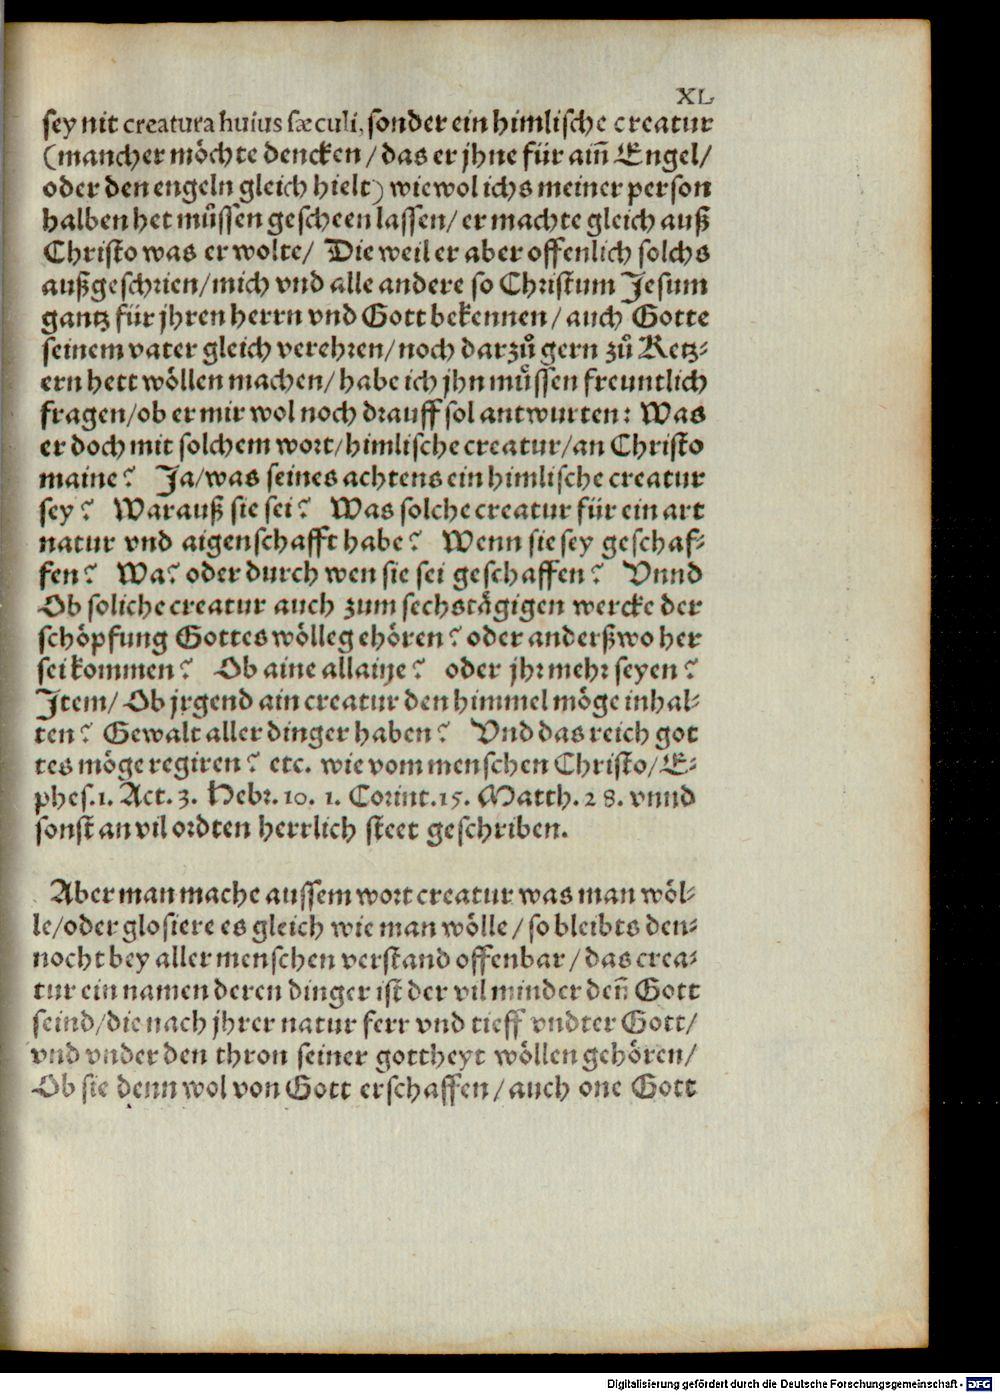 XL
sey nit creatura huius sæculi, sonder ein himlische creatur
(mancher möchte dencken / das er jhne für aiñ Engel /
oder den engeln gleich hielt) wiewol ichs meiner person
halben het můssen gescheen lassen / er machte gleich auß
Christo was er wolte / Die weil er aber offenlich solchs
außgeschrien / mich vnd alle andere so Christum Jesum
gantz für jhren herrn vnd Gott bekennen / auch Gotte
seinem vater gleich verehren / noch darzů gern zů Retz⸗
ern hett wöllen machen / habe ich jhn můssen freuntlich
fragen / ob er mir wol noch drauff sol antwurten: Was
er doch mit solchem wort / himlische creatur / an Christo
maine? Ja / was seines achtens ein himlische creatur
sey? Warauß sie sei? Was solche creatur für ein art
natur vnd aigenschafft habe? Wenn sie sey geschaf⸗
fen? Wa? oder durch wen sie sei geschaffen? Vnnd
Ob soliche creatur auch zum sechstägigen wercke der
schöpfung Gottes wölle gehören? oder anderßwo her
sei kommen? Ob aine allaine? oder jhr mehr seyen?
Item / Ob jrgend ain creatur den himmel möge inhal⸗
ten? Gewalt aller dinger haben? Vnd das reich got
tes möge regiren? etc. wie vom menschen Christo / E⸗
phes.1. Act. 3. Hebr. 10. 1. Corint. 15. Matth. 28. vnnd
sonst an vil ordten herrlich steet geschriben.
Aber man mache aussem wort creatur was man wöl⸗
le / oder glosiere es gleich wie man wölle / so bleibts den⸗
nocht bey aller menschen verstand offenbar / das crea⸗
tur ein namen deren dinger ist der vil minder deñ Gott
seind / die nach jhrer natur ferr vnd tieff vndter Gott /
vnd vnder den thron seiner gottheyt wöllen gehören /
Ob sie denn wol von Gott erschaffen / auch one Gott
Digitalisierung gefördert durch die Deutsche Forschungsgemeinschaft - DFG